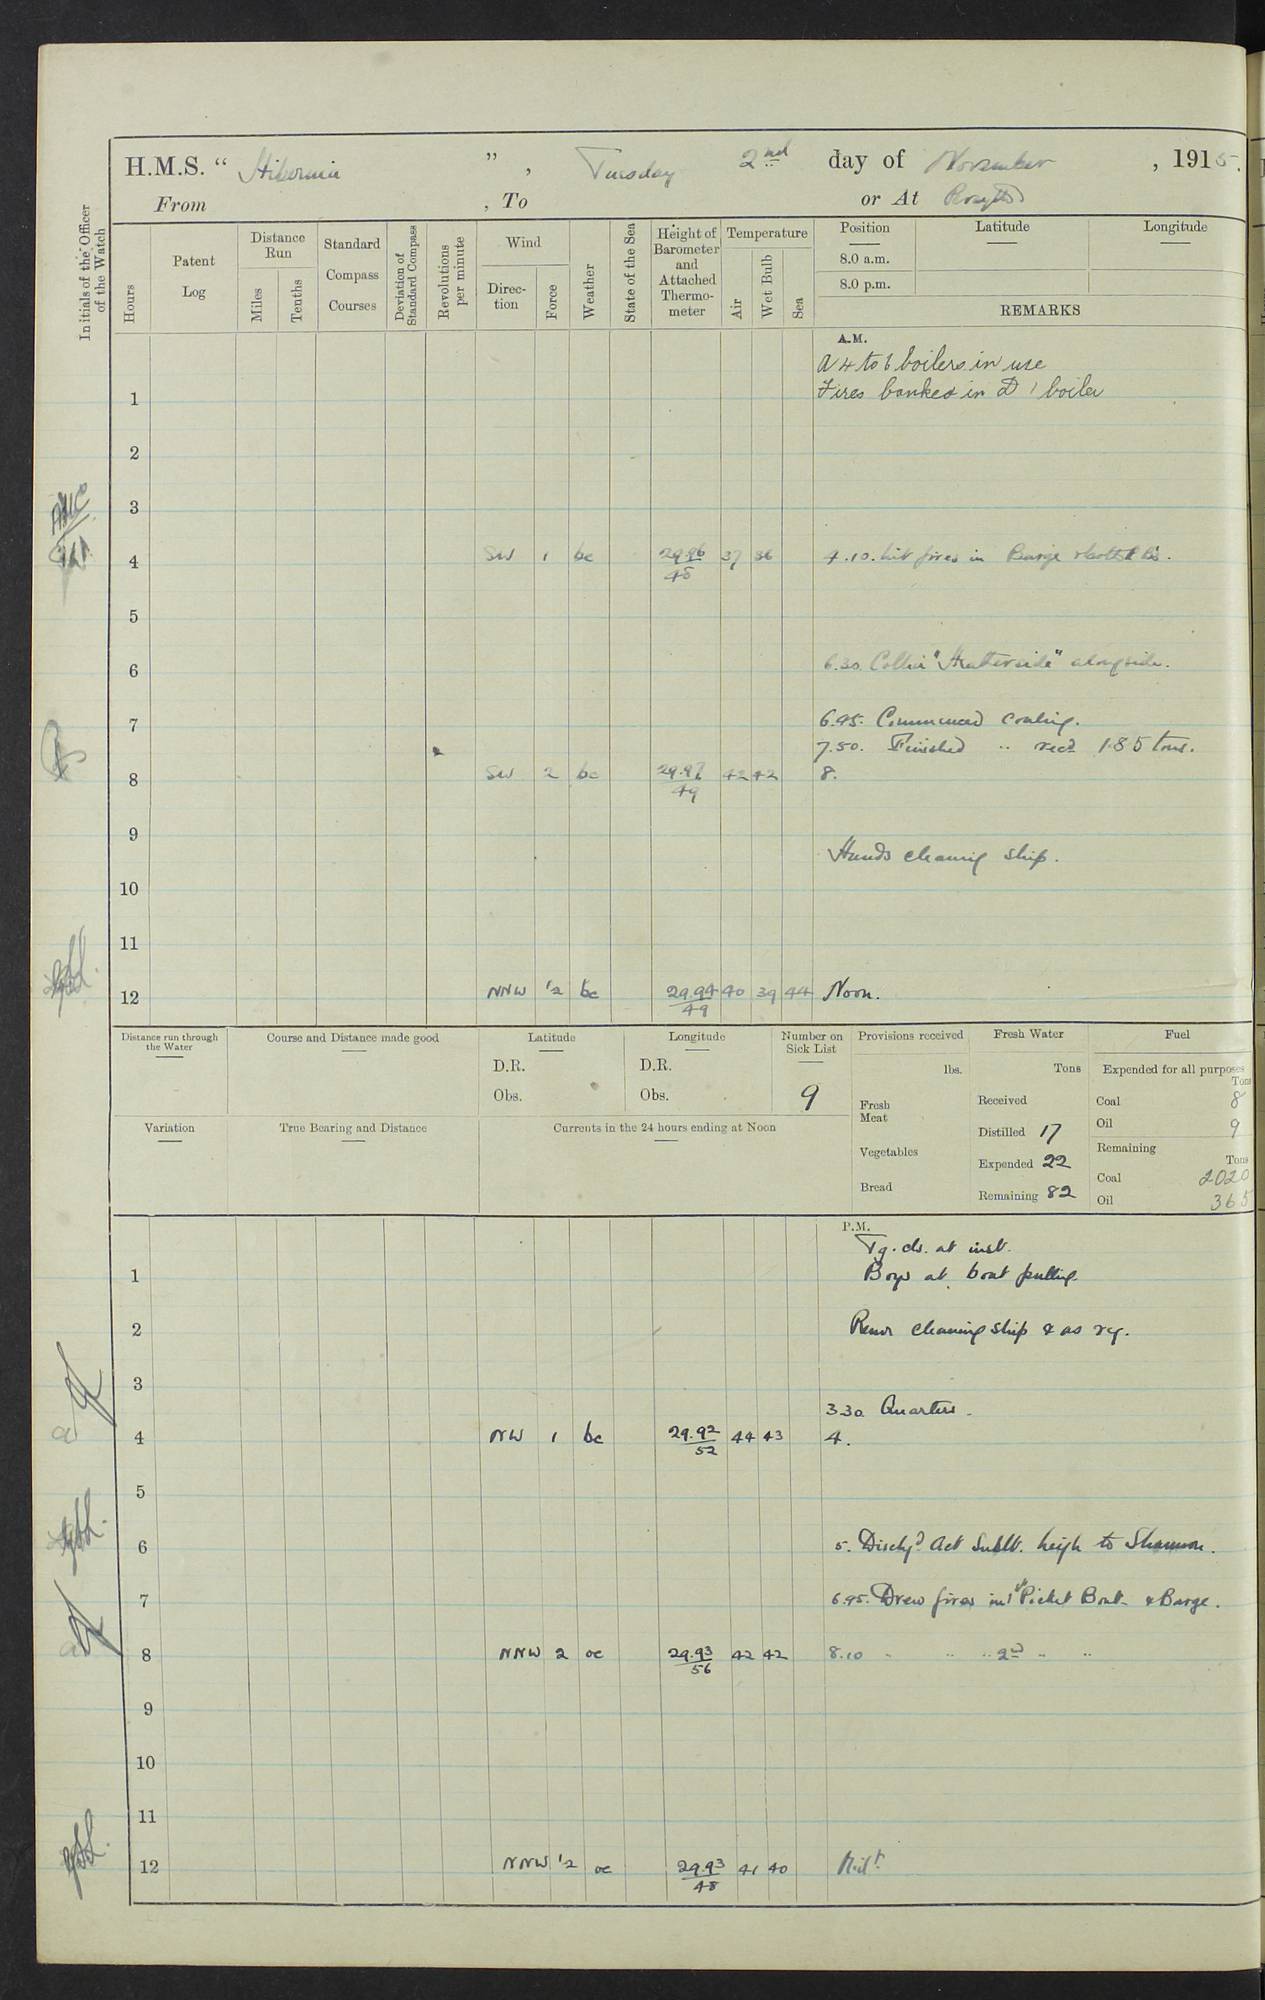 H.M.S. “ Hibernia ” , Tuesday 2nd day of November , 1915.
From , To or At Rosyth
Initials of the Officer of the Watch
Hours
Patent Log
Distance Run
Miles
Tenths
Standard Compass Courses
Deviation of Standard Compass
Revolutions per minute
Wind
Direction
Force
Weather
State of the Sea
Height of Barometer and Attached Thermometer
Temperature
Air
Wet Bulb
Sea
Position Latitude Longitude
8.0 a.m.
8.0 p.m.
REMARKS
A.M.
A 4 to 6 boilers in use
1 Fires banked in D 1 boiler
2
3
4 SW 1 bc 29.96 37 36 4.10. Lit fires in Barge
45
5
6 6.30. Collier "Heatherside" alongside.
7 6.45. Commenced coaling.
7.50. Finished " recd 185 tons.
8 SW 2 bc 29.97 42 42 8.
49
9
Hands cleaning ship.
10
11
12 NNW 1/2 bc 29.94 40 39 44 Noon.
49
Distance run through the Water
Course and Distance made good
Latitude
D.R.
Obs.
Longitude
D.R.
Obs.
Number on Sick List
9
Provisions received
lbs.
Fresh Meat
Vegetables
Bread
Fresh Water
Tons
Received
Distilled 17
Expended 22
Remaining 82
Fuel
Expended for all purposes
Tons
Coal 8
Oil 9
Remaining
Tons
Coal 2020
Oil 365
Variation
True Bearing and Distance
Currents in the 24 hours ending at Noon
P.M.
Tg. cls. at inst.
1 Boys at boat pulling.
2 Remr cleaning ship & as rq.
3
3.30 Quarters.
4 NW 1 bc 29.92 44 43 4.
52
5
6 5. Dischgd Act Sublt. Leigh to Shannon.
7 6.45. Drew fires in 1st Picket Boat & Barge.
8 NNW 2 oc 29.93 42 42 8.10 " " " 2nd " "
56
9
10
11
12 NNW 1/2 oc 29.93 41 40 Midt.
48